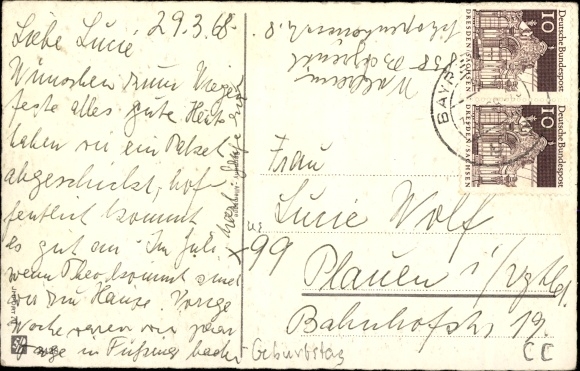 29.3.68.
Liebe Lucie
Wünschen zum Wiegen
feste alles gute Heute
haben wir ein Paket
abgeschickt, hof
fentlich kommt
es gut an Im Juli
wenn Theo kommt sind
wir zu Hause. Vorige
Woche waren wir paar
Tage in Füssing baden
858 Bayreuth
Deutsche Bundespost
10
DRESDEN-SACHSEN
Deutsche Bundespost
10
DRESDEN-SACHSEN
BAYR
Frau
Lucie Wolf
x 99 Plauen i/Vgtld.
Bahnhofstr 19.
Geburtstag
CC